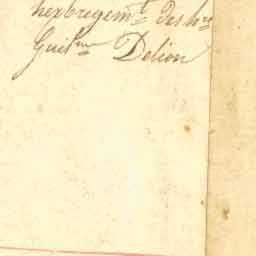 herbregemt des hrs
Guilme Delion